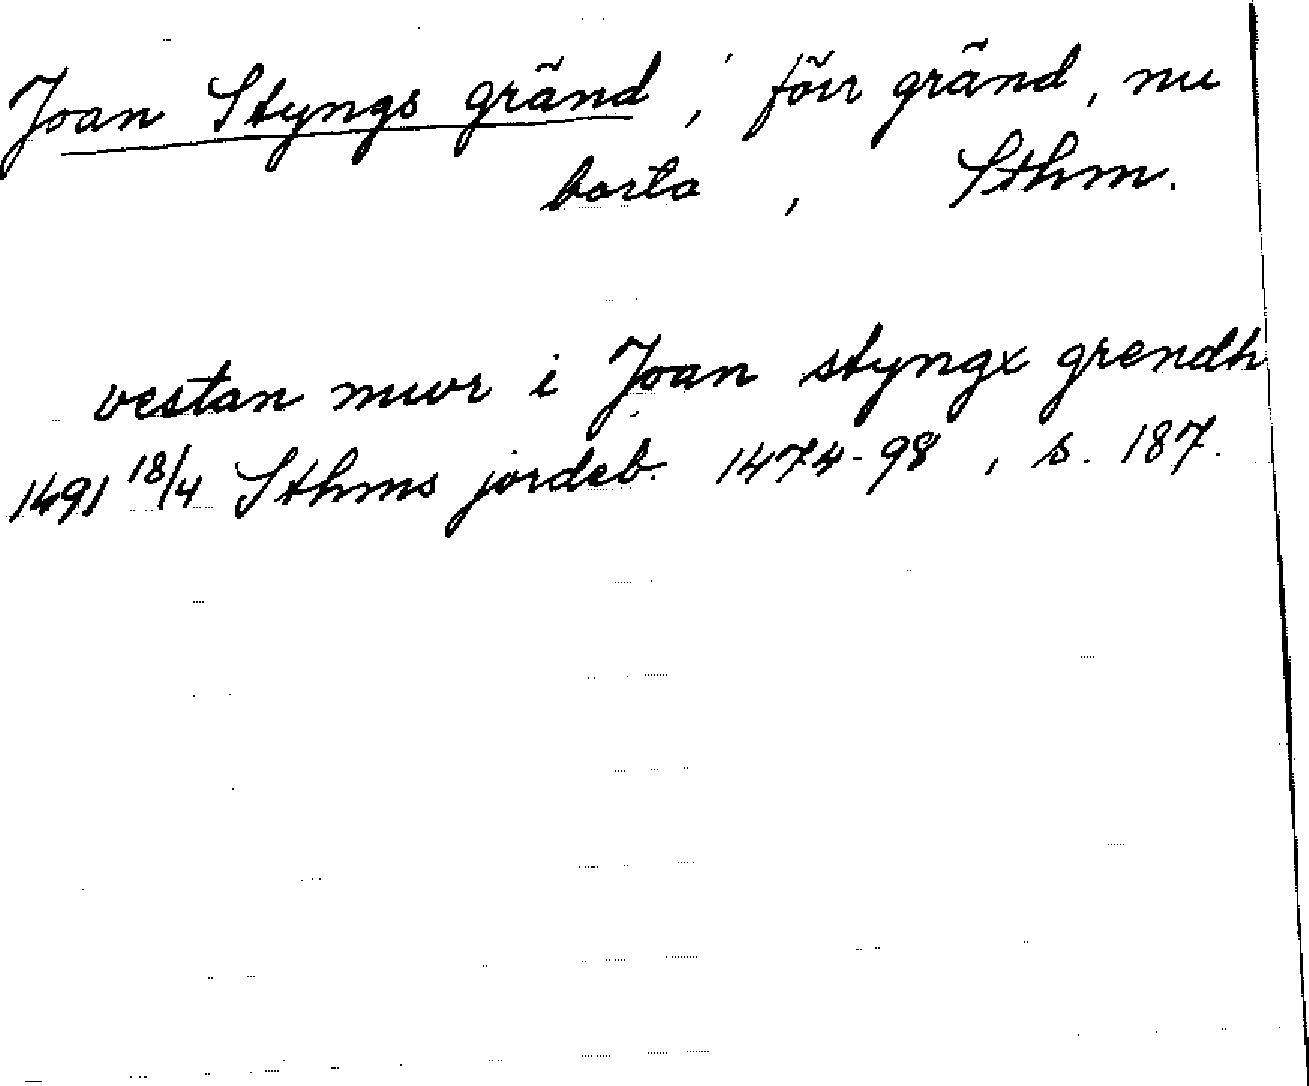 Joan Styngs gränd, förr gränd, nu
borta, Sthm.
vestan mwr i Joan styngx grendh
1491 18/4 Sthms jordeb. 1474-98, s. 187.